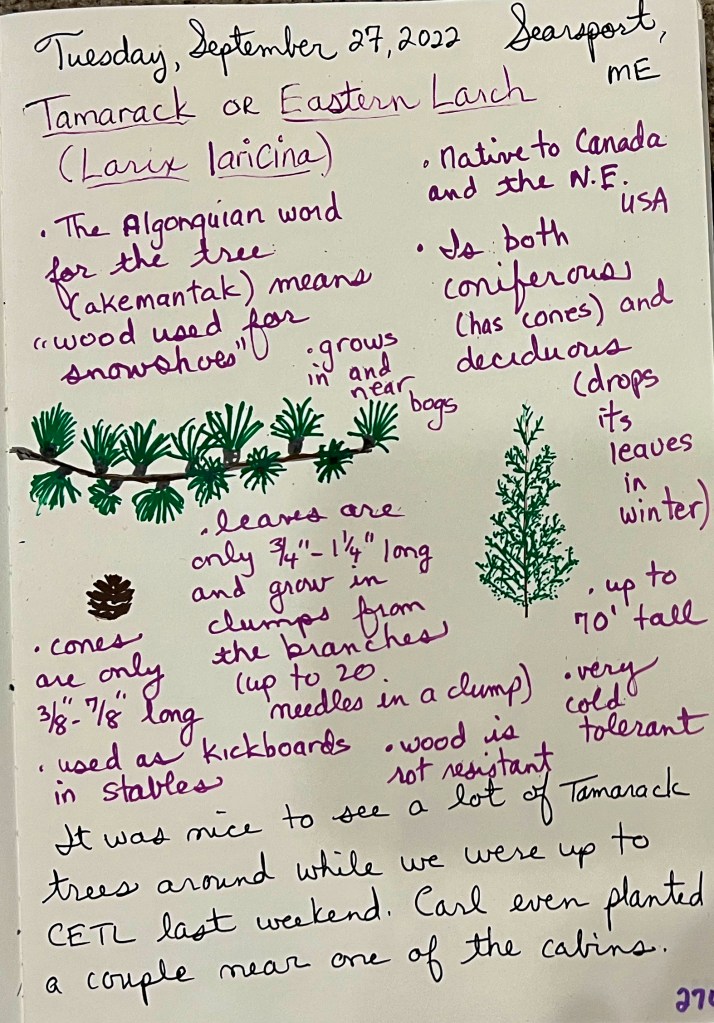 Tuesday, September 27, 2022 Searsport,
ME
Tamarack or Eastern Larch
(Larix laricina)
• Native to Canada
and the N.E.
USA
• The Algonquian word
for the tree
(akemantak) means
"wood used for
snowshoes"
• Is both
coniferous
(has cones) and
deciduous
(drops
its
leaves
in
winter)
• grows
in and
near
bogs
• leaves are
only 3/4"-1 1/4" long
and grow in
clumps from
the branches
(up to 20
needles in a clump)
• up to
70' tall
• cones
are only
3/8"-7/8" long
• very
cold
tolerant
• used as kickboards
in stables
• wood is
rot resistant
It was nice to see a lot of Tamarack
trees around while we were up to
CETL last weekend. Carl even planted
a couple near one of the cabins.